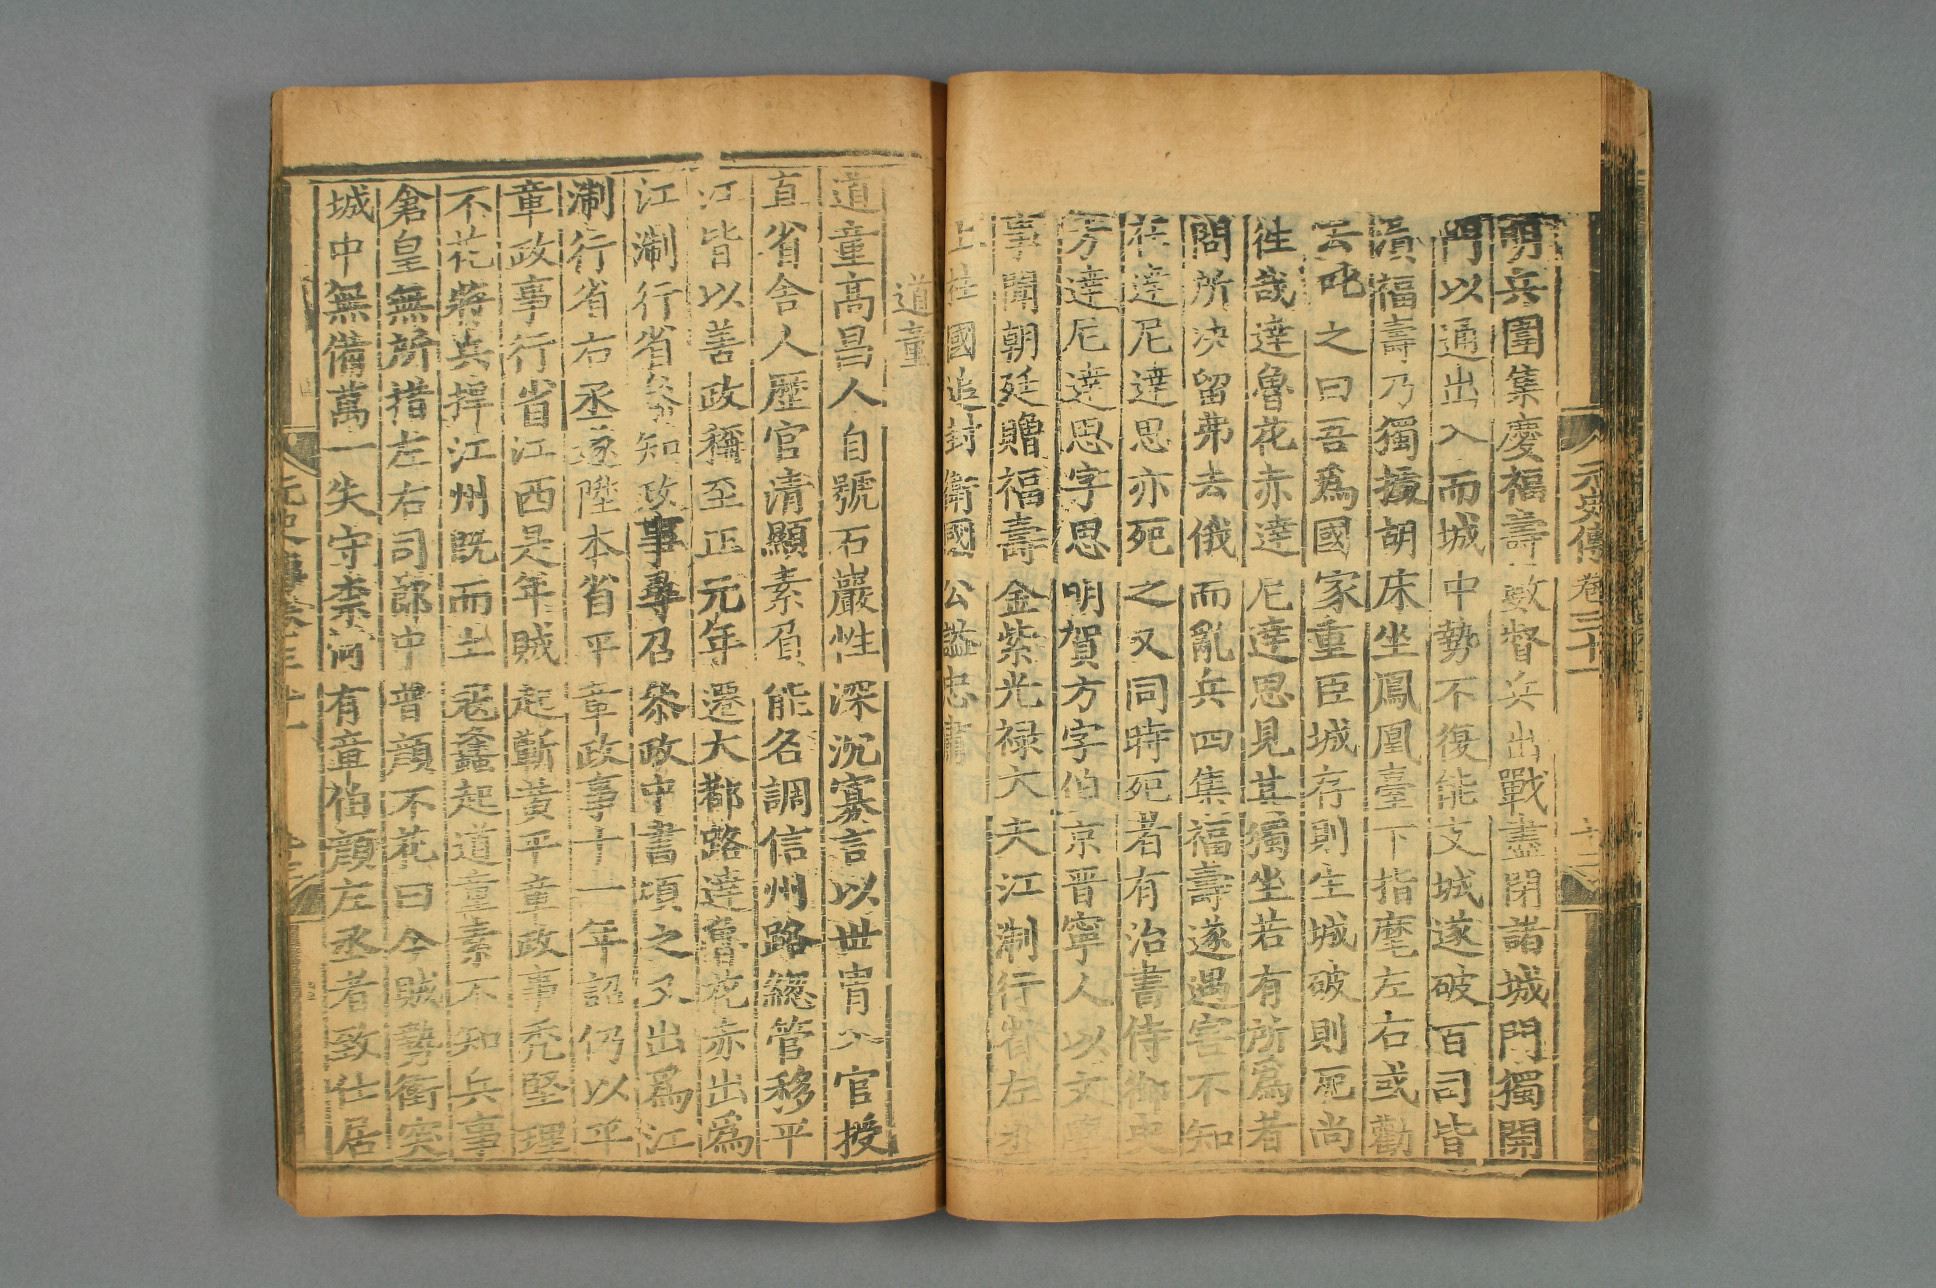 元史傳卷三十一
明兵圍集慶福壽數督兵出戰盡閉諸城門獨開
門以通出入而城中勢不復能支城遂破百司皆
潰福壽乃獨據胡床坐鳳凰臺下指麾左右或勸
去叱之曰吾爲國家重臣城存則生城破則死尚
徃哉達魯花赤達尼達思見其獨坐若有所爲者
問所决留弗去俄而亂兵四集福壽遂遇害不知
在達尼達思亦死之又同時死者有治書侍御史
方達尼達思字思明賀方字伯京晋寧人以文學
事聞朝廷贈福壽金紫光禄大夫江浙行省左丞
上柱國追封衛國公謚忠肅
道童
道童高昌人自號石巖性深沉寡言以世胄入官授
直省舍人歷官清顯素負能名調信州路緫管移平
江皆以善政稱至正元年遷大都路達魯花赤出爲
江浙行省叅知政事尋召叅政中書頃之又出爲江
浙行省右丞遂陞本省平章政事十一年詔仍以平
章政事行省江西是年賊起蘄黄平章政事禿堅理
不花將兵捍江州既而土宼蠭起道童素不知兵事
倉皇無所措左右司郎中普顔不花曰今賊勢衝突
城中無備萬一失守柰何有章伯顔左丞者致仕居
元史傳卷三十一